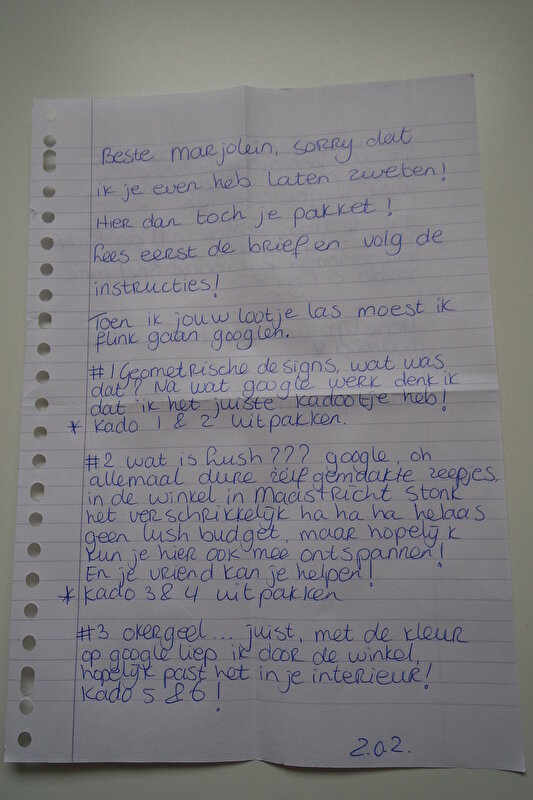 Beste Marjolein, sorry dat
ik je even heb laten zweten!
Hier dan toch je pakket!
Lees eerst de brief en volg de
instructies!
Toen ik jouw lootje las moest ik
flink gaan googlen.
#1 Geometrische designs, wat was
dat? Na wat google werk denk ik
dat ik het juiste kadootje heb!
* Kado 1 & 2 uitpakken.
#2 wat is Lush??? google, oh
allemaal dure zelfgemaakte zeepjes.
in de winkel in Maastricht stonk
het verschrikkelijk ha ha ha helaas
geen Lush budget, maar hopelijk
kun je hier ook mee ontspannen!
En je vriend kan je helpen!
* Kado 3 & 4 uitpakken
#3 okergeel... juist, met de kleur
op google liep ik door de winkel,
hopelijk past het in je interieur!
Kado 5 & 6!
z.o.z.